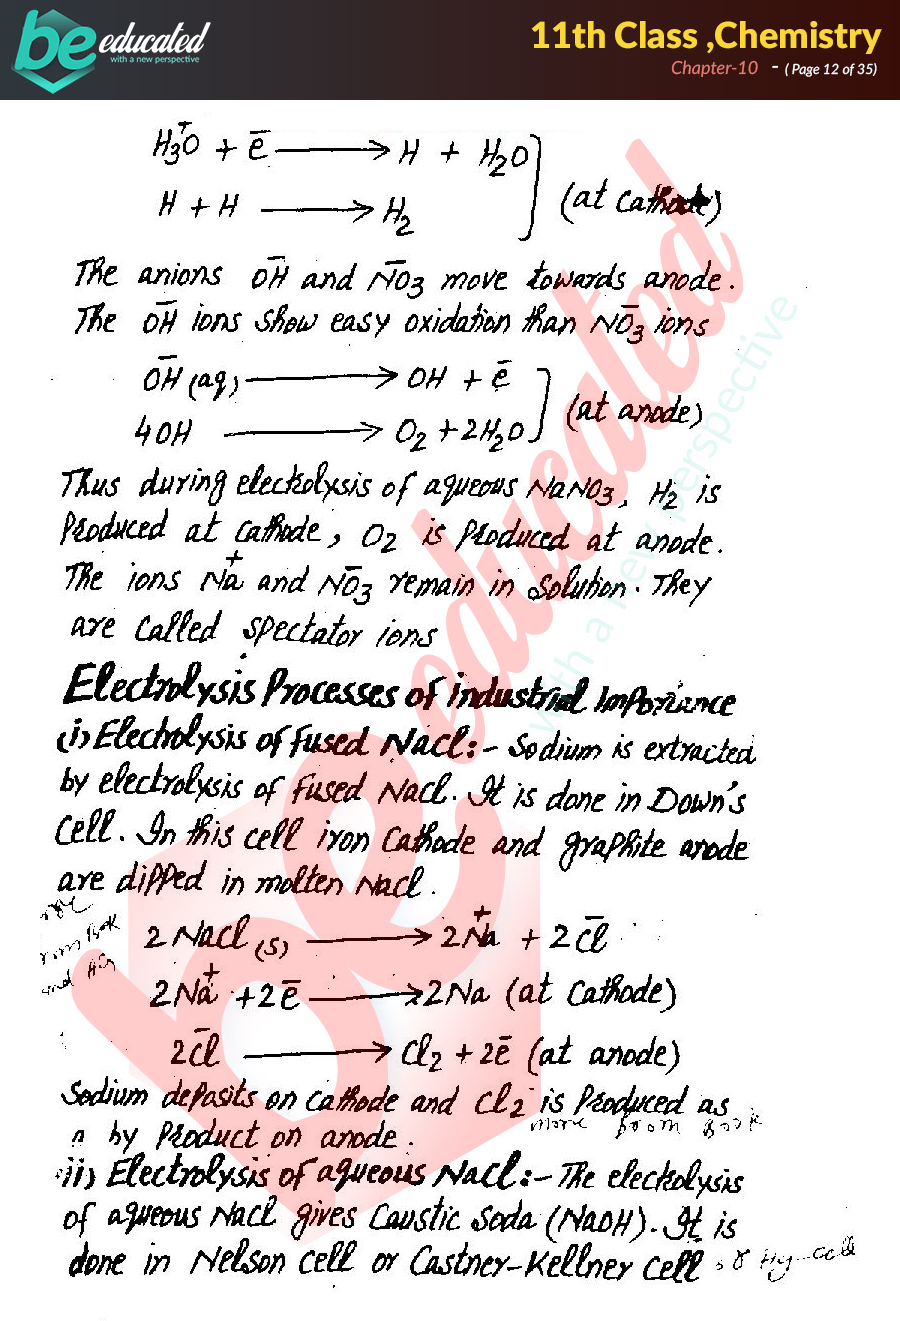 be educated
with a new perspective
11th Class ,Chemistry
Chapter-10 - ( Page 12 of 35)
H₃O⁺ + e⁻ → H + H₂O
H + H → H₂ (at cathode)
The anions OH⁻ and NO₃⁻ move towards anode.
The OH⁻ ions show easy oxidation than NO₃⁻ ions
OH⁻(aq) → OH + e⁻
4OH → O₂ + 2H₂O (at anode)
Thus during electrolysis of aqueous NaNO₃, H₂ is
Produced at cathode, O₂ is Produced at anode.
The ions Na⁺ and NO₃⁻ remain in solution. They
are called spectator ions
Electrolysis Processes of industrial Importance
(i) Electrolysis of fused NaCl:- Sodium is extracted
by electrolysis of fused NaCl. It is done in Down's
Cell. In this cell iron Cathode and graphite anode
are dipped in molten NaCl.
2NaCl(s) → 2Na⁺ + 2Cl⁻
2Na⁺ + 2e⁻ → 2Na (at Cathode)
2Cl⁻ → Cl₂ + 2e⁻ (at anode)
Sodium deposits on cathode and Cl₂ is Produced as
a by Product on anode.
more from Book
ii) Electrolysis of aqueous NaCl:- The electrolysis
of aqueous NaCl gives Caustic Soda (NaOH). It is
done in Nelson cell or Castner-Kellner cell
Hg-cell
be educated
with a new perspective